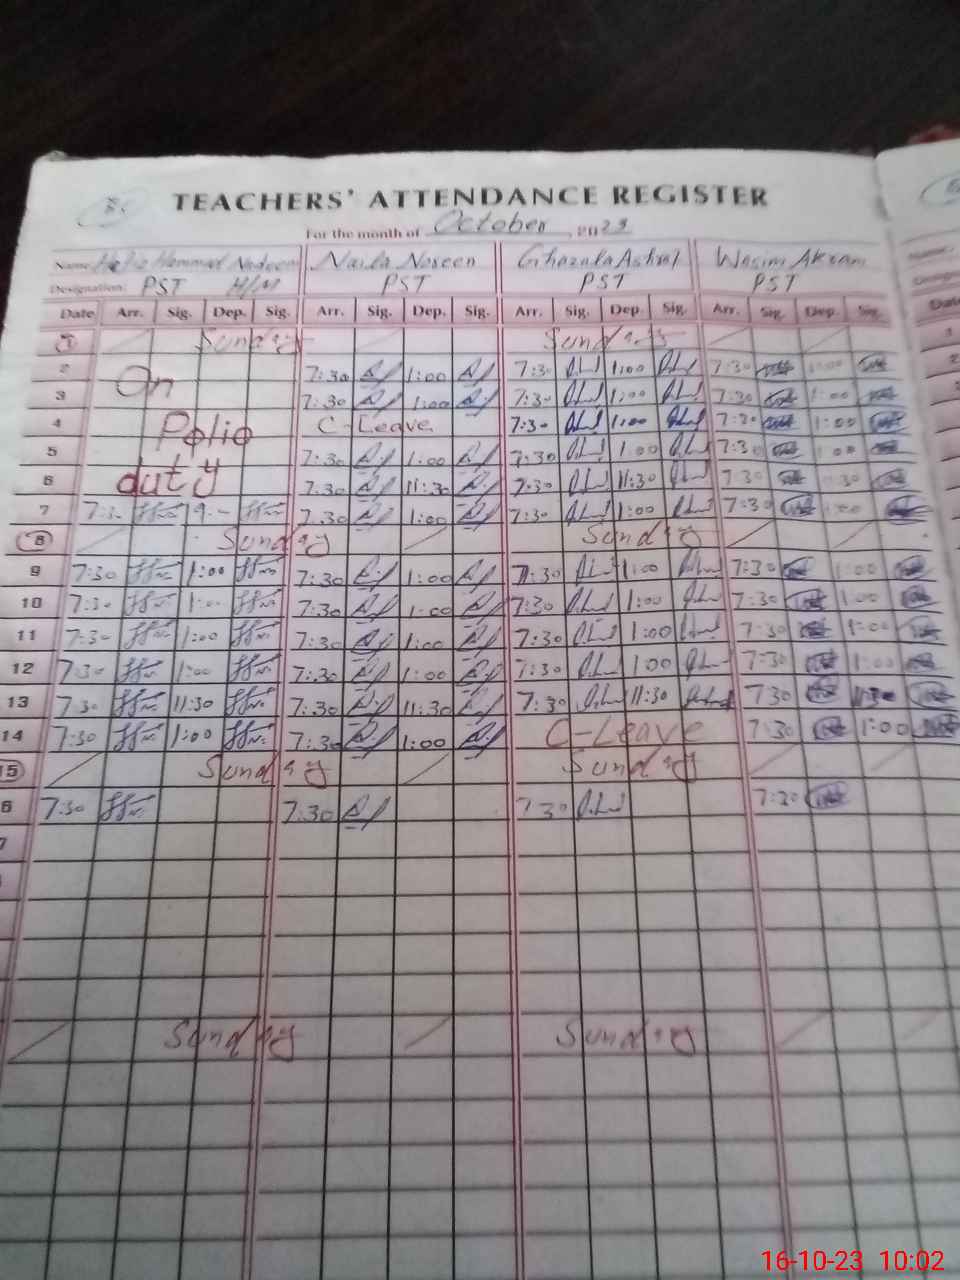 TEACHERS' ATTENDANCE REGISTER
For the month of October, 2023
Name Hafiz Hammad Nadeem Naila Noreen Ghazala Ashraf Wasim Akram
Designation: PST H/M PST PST PST
Date Arr. Sig. Dep. Sig. Arr. Sig. Dep. Sig. Arr. Sig. Dep. Sig. Arr. Sig. Dep. Sig.
1 Sunday Sunday
2 On 7:30 1:00 7:30 1:00 7:30 1:00
3 7:30 1:00 7:30 1:00 7:30 1:00
4 Polio C-Leave 7:30 1:00 7:30 1:00
5 7:30 1:00 7:30 1:00 7:30 1:00
6 duty 7:30 11:30 7:30 11:30 7:30 11:30
7 7:30 7:30 1:00 7:30 1:00 7:30 1:00
8 Sunday Sunday
9 7:30 1:00 7:30 1:00 7:30 1:00 7:30 1:00
10 7:30 1:00 7:30 1:00 7:30 1:00 7:30 1:00
11 7:30 1:00 7:30 1:00 7:30 1:00 7:30 1:00
12 7:30 1:00 7:30 1:00 7:30 1:00 7:30 1:00
13 7:30 11:30 7:30 11:30 7:30 11:30 7:30 11:30
14 7:30 1:00 7:30 1:00 C-Leave 7:30 1:00
15 Sunday Sunday
6 7:30 7:30 7:30 7:30
7
Sunday Sunday
16-10-23 10:02